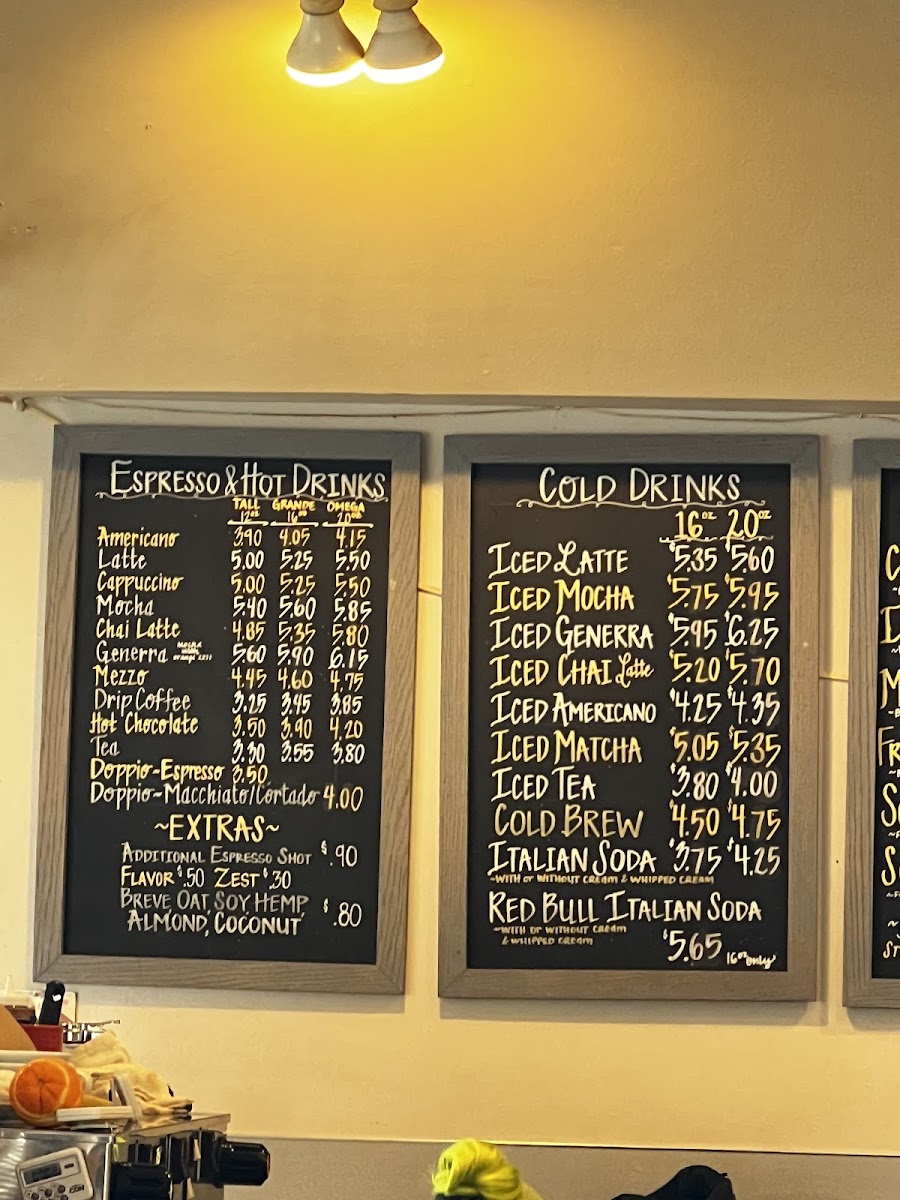 ESPRESSO & HOT DRINKS
TALL GRANDE OMEGA
12oz 16oz 20oz
Americano 3.90 4.05 4.15
Latte 5.00 5.25 5.50
Cappuccino 5.00 5.25 5.50
Mocha 5.40 5.60 5.85
Chai Latte 4.85 5.35 5.80
Generra 5.60 5.90 6.15
Mezzo 4.45 4.60 4.75
Drip Coffee 3.25 3.45 3.85
Hot Chocolate 3.50 3.90 4.20
Tea 3.30 3.55 3.80
Doppio-Espresso 3.50
Doppio-Macchiato/Cortado 4.00
~EXTRAS~
ADDITIONAL ESPRESSO SHOT $.90
FLAVOR $.50 ZEST $.30
BREVE OAT SOY HEMP
ALMOND, COCONUT $.80
COLD DRINKS
16oz 20oz
ICED LATTE $5.35 $5.60
ICED MOCHA $5.75 $5.95
ICED GENERRA $5.95 $6.25
ICED CHAI Latte $5.20 $5.70
ICED AMERICANO $4.25 $4.35
ICED MATCHA $5.05 $5.35
ICED TEA $3.80 $4.00
COLD BREW $4.50 $4.75
ITALIAN SODA $3.75 $4.25
~WITH or WITHOUT CREAM & WHIPPED CREAM
RED BULL ITALIAN SODA
~WITH OR WITHOUT CREAM
& WHIPPED CREAM
$5.65 16oz only